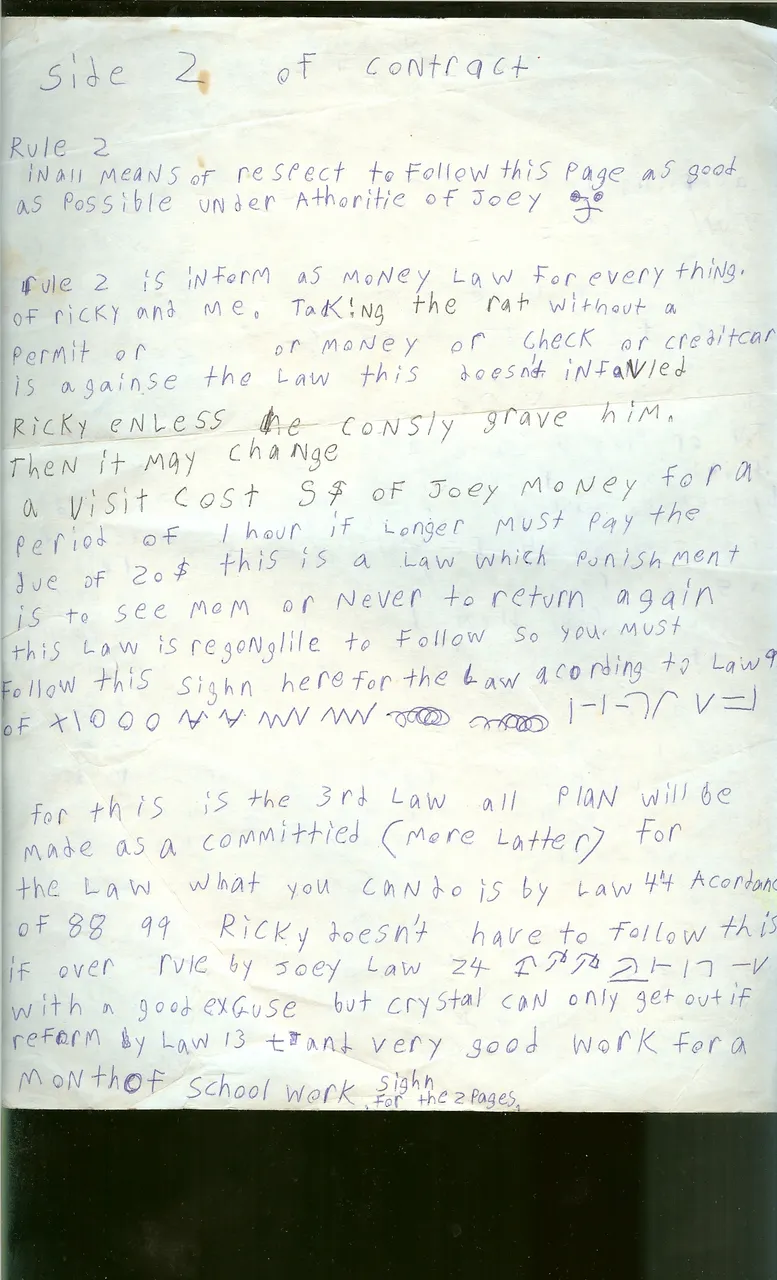 Side 2 of contract
Rule 2
in all means of respect to Follow this Page as good
as Possible under Athoritie of Joey
rule 2 is inform as money Law for every thing.
of ricky and me. Taking the rat without a
permit or or money or check or creditcar
is againse the Law this doesn't infavled
Ricky enless he consly grave him.
Then it may change
a visit cost 5$ of Joey money for a
period of 1 hour if Longer must pay the
due of 20$ this is a Law which punishment
is to see mom or never to return again
this Law is regonglile to Follow so you must
Follow this sighn here for the Law acording to Law 9
of x1000
for this is the 3rd Law all plan will be
made as a committied (more Latter) for
the Law what you can do is by Law 44 Acordanc
of 88 99 Ricky doesn't have to follow this
if over rule by Joey Law 24
with a good exGuse but crystal can only get out if
reform by Law 13 and very good work for a
month of school work sighn
for the 2 pages.